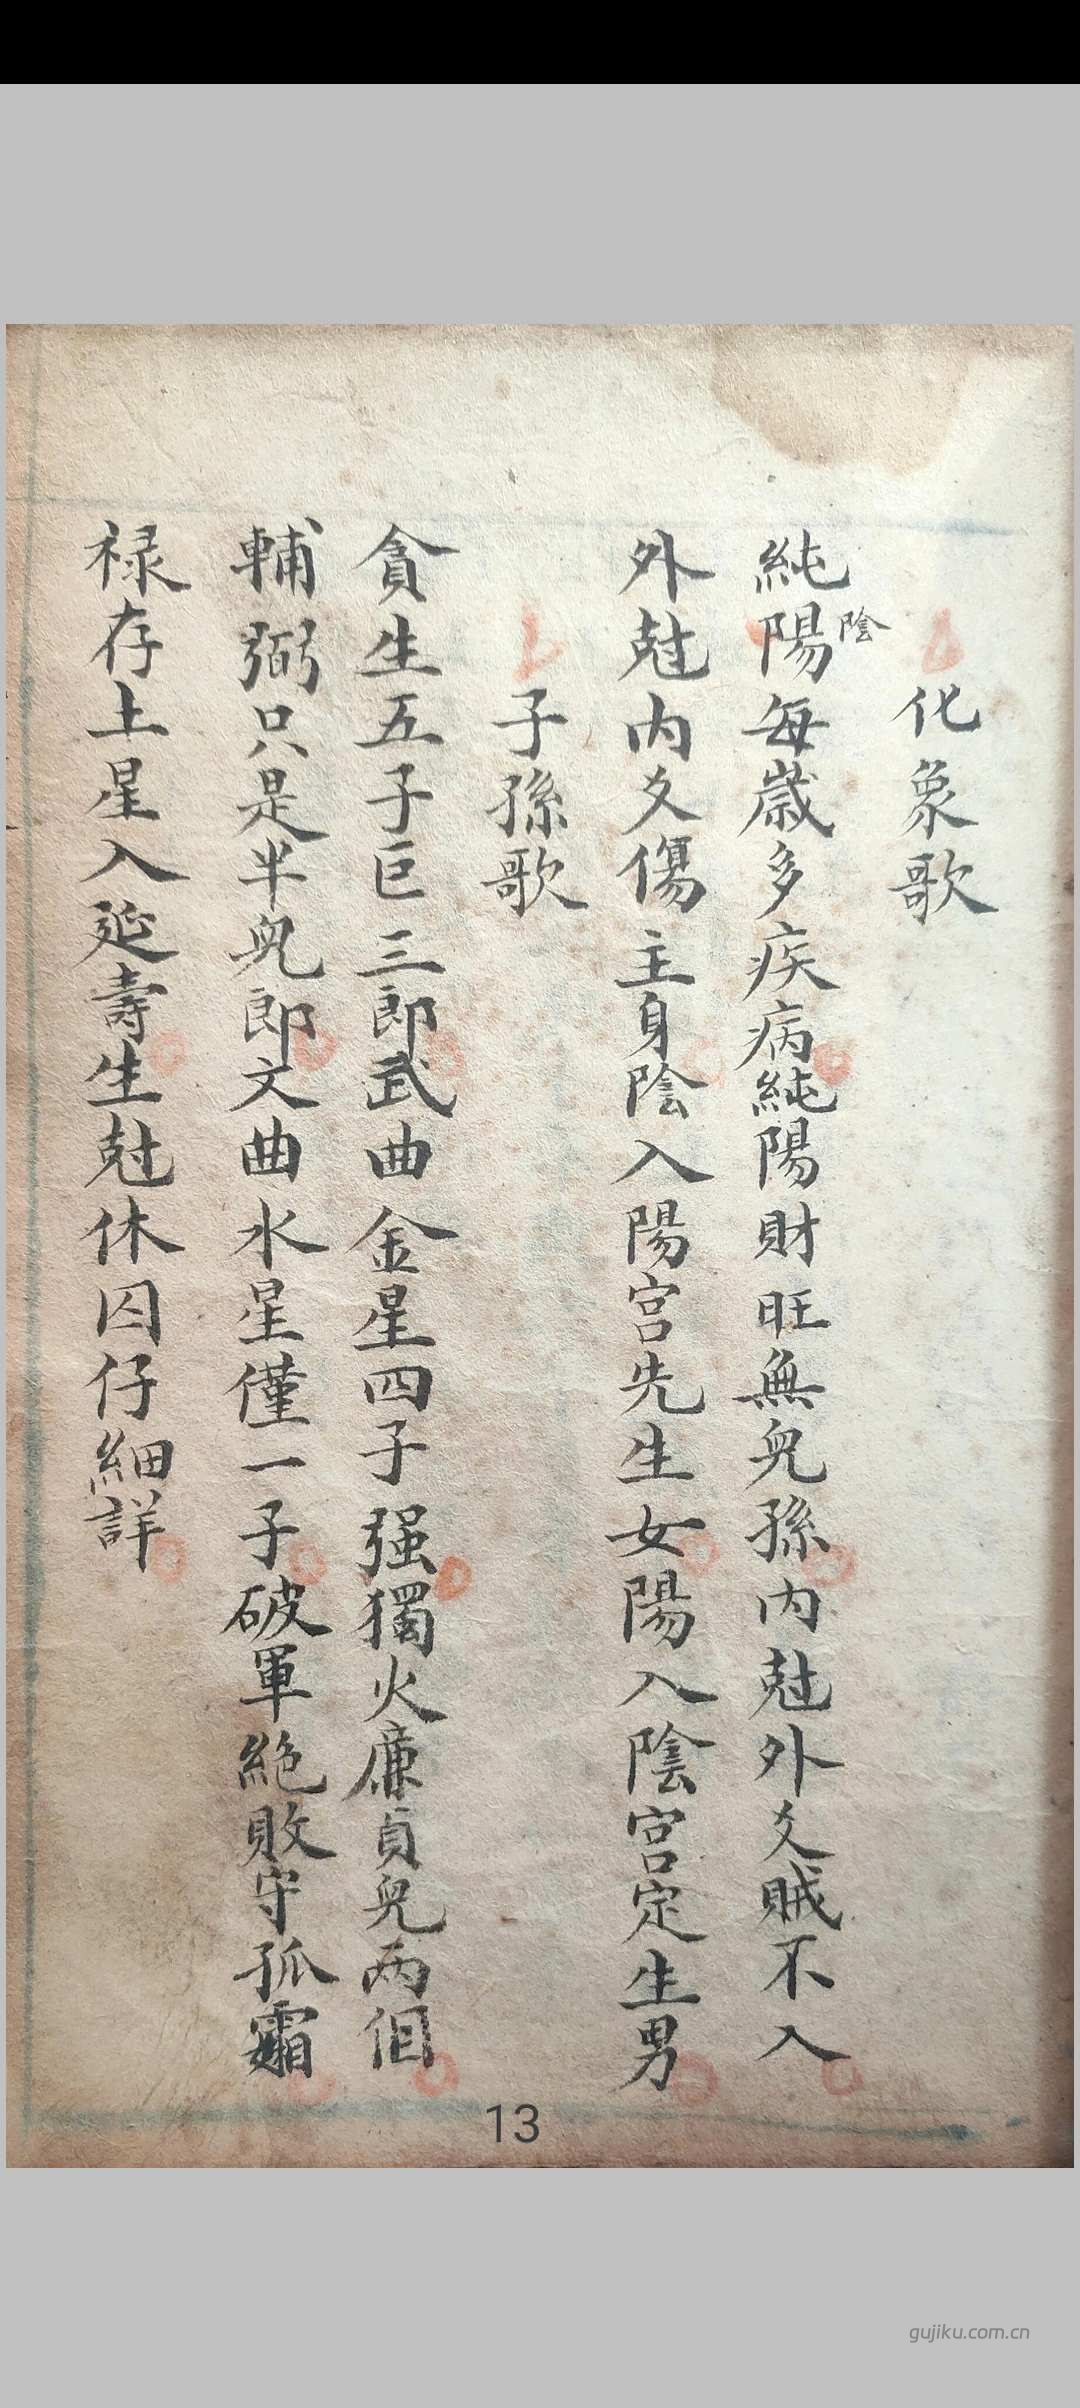 化象歌
純陽陰每歲多疾病純陽財旺無兒孫内尅外爻賊不入
外尅内爻傷主身陰入陽宫先生女陽入陰宫定生男
子孫歌
貪生五子巨三郎武曲金星四子强獨火廉貞兒兩個
輔弼只是半兒郎文曲水星僅一子破軍絶敗守孤霜
禄存土星入延壽生尅休囚仔細詳
13
gujiku.com.cn